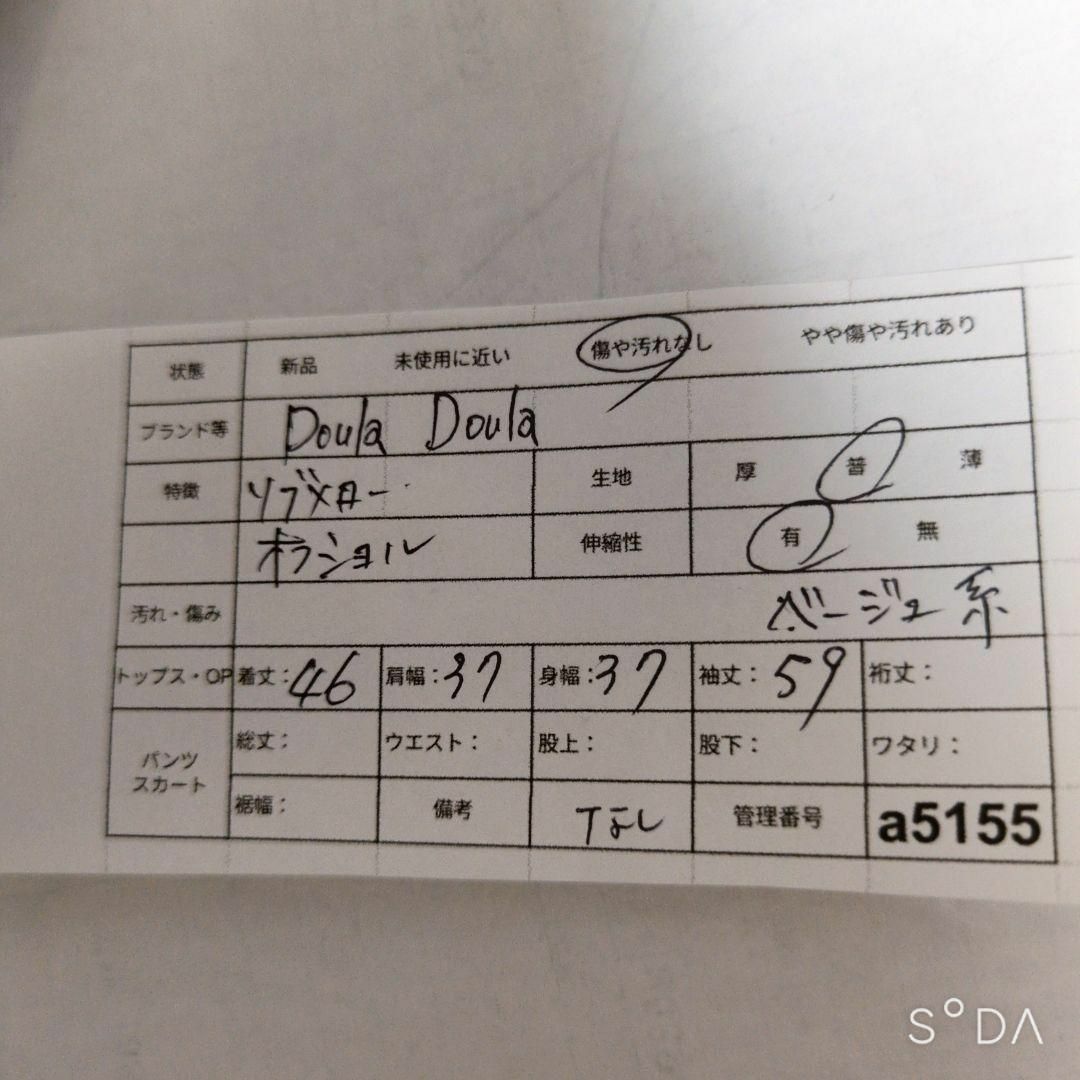 状態 新品 未使用に近い 傷や汚れなし やや傷や汚れあり
ブランド等 Doula Doula
特徴 リブメロー 生地 厚 普 薄
オフショル 伸縮性 有 無
汚れ・傷み ベージュ系
トップス・OP 着丈:46 肩幅:37 身幅:37 袖丈:59 裄丈:
パンツ スカート 総丈: ウエスト: 股上: 股下: ワタリ:
裾幅: 備考 Tなし 管理番号 a5155
S°DA